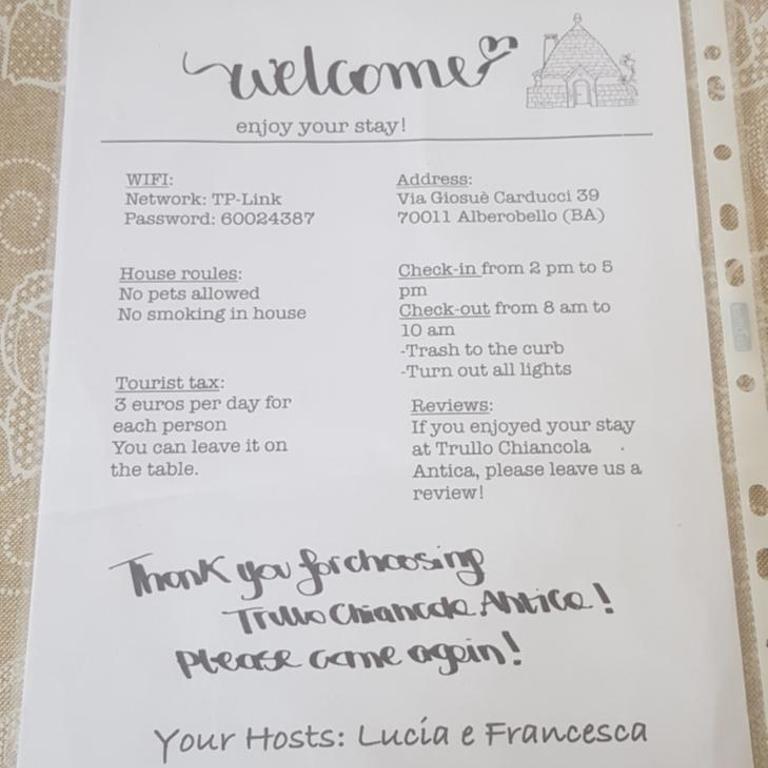 welcome
enjoy your stay!
WIFI:
Network: TP-Link
Password: 60024387
Address:
Via Giosuè Carducci 39
70011 Alberobello (BA)
House roules:
No pets allowed
No smoking in house
Check-in from 2 pm to 5
pm
Check-out from 8 am to
10 am
-Trash to the curb
-Turn out all lights
Tourist tax:
3 euros per day for
each person
You can leave it on
the table.
Reviews:
If you enjoyed your stay
at Trullo Chiancola
Antica, please leave us a
review!
Thank you for choosing
Trullo Chiancola Antica!
please come again!
Your Hosts: Lucia e Francesca